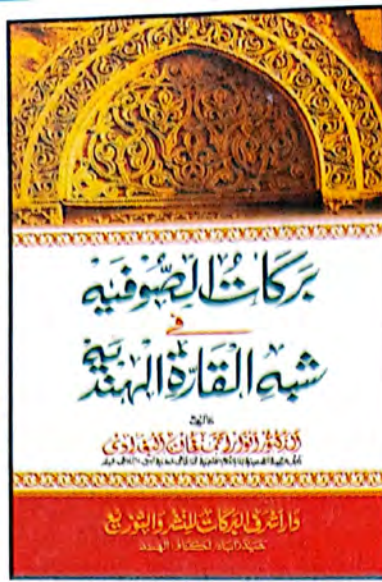 بركات الصوفيه
في
شبه القارة الهندية
تأليف
الدكتور انوار احمد خان البغدادي
دار اشرفي البركات للنشر والتوزيع
حيدراباد لكناؤ الهند